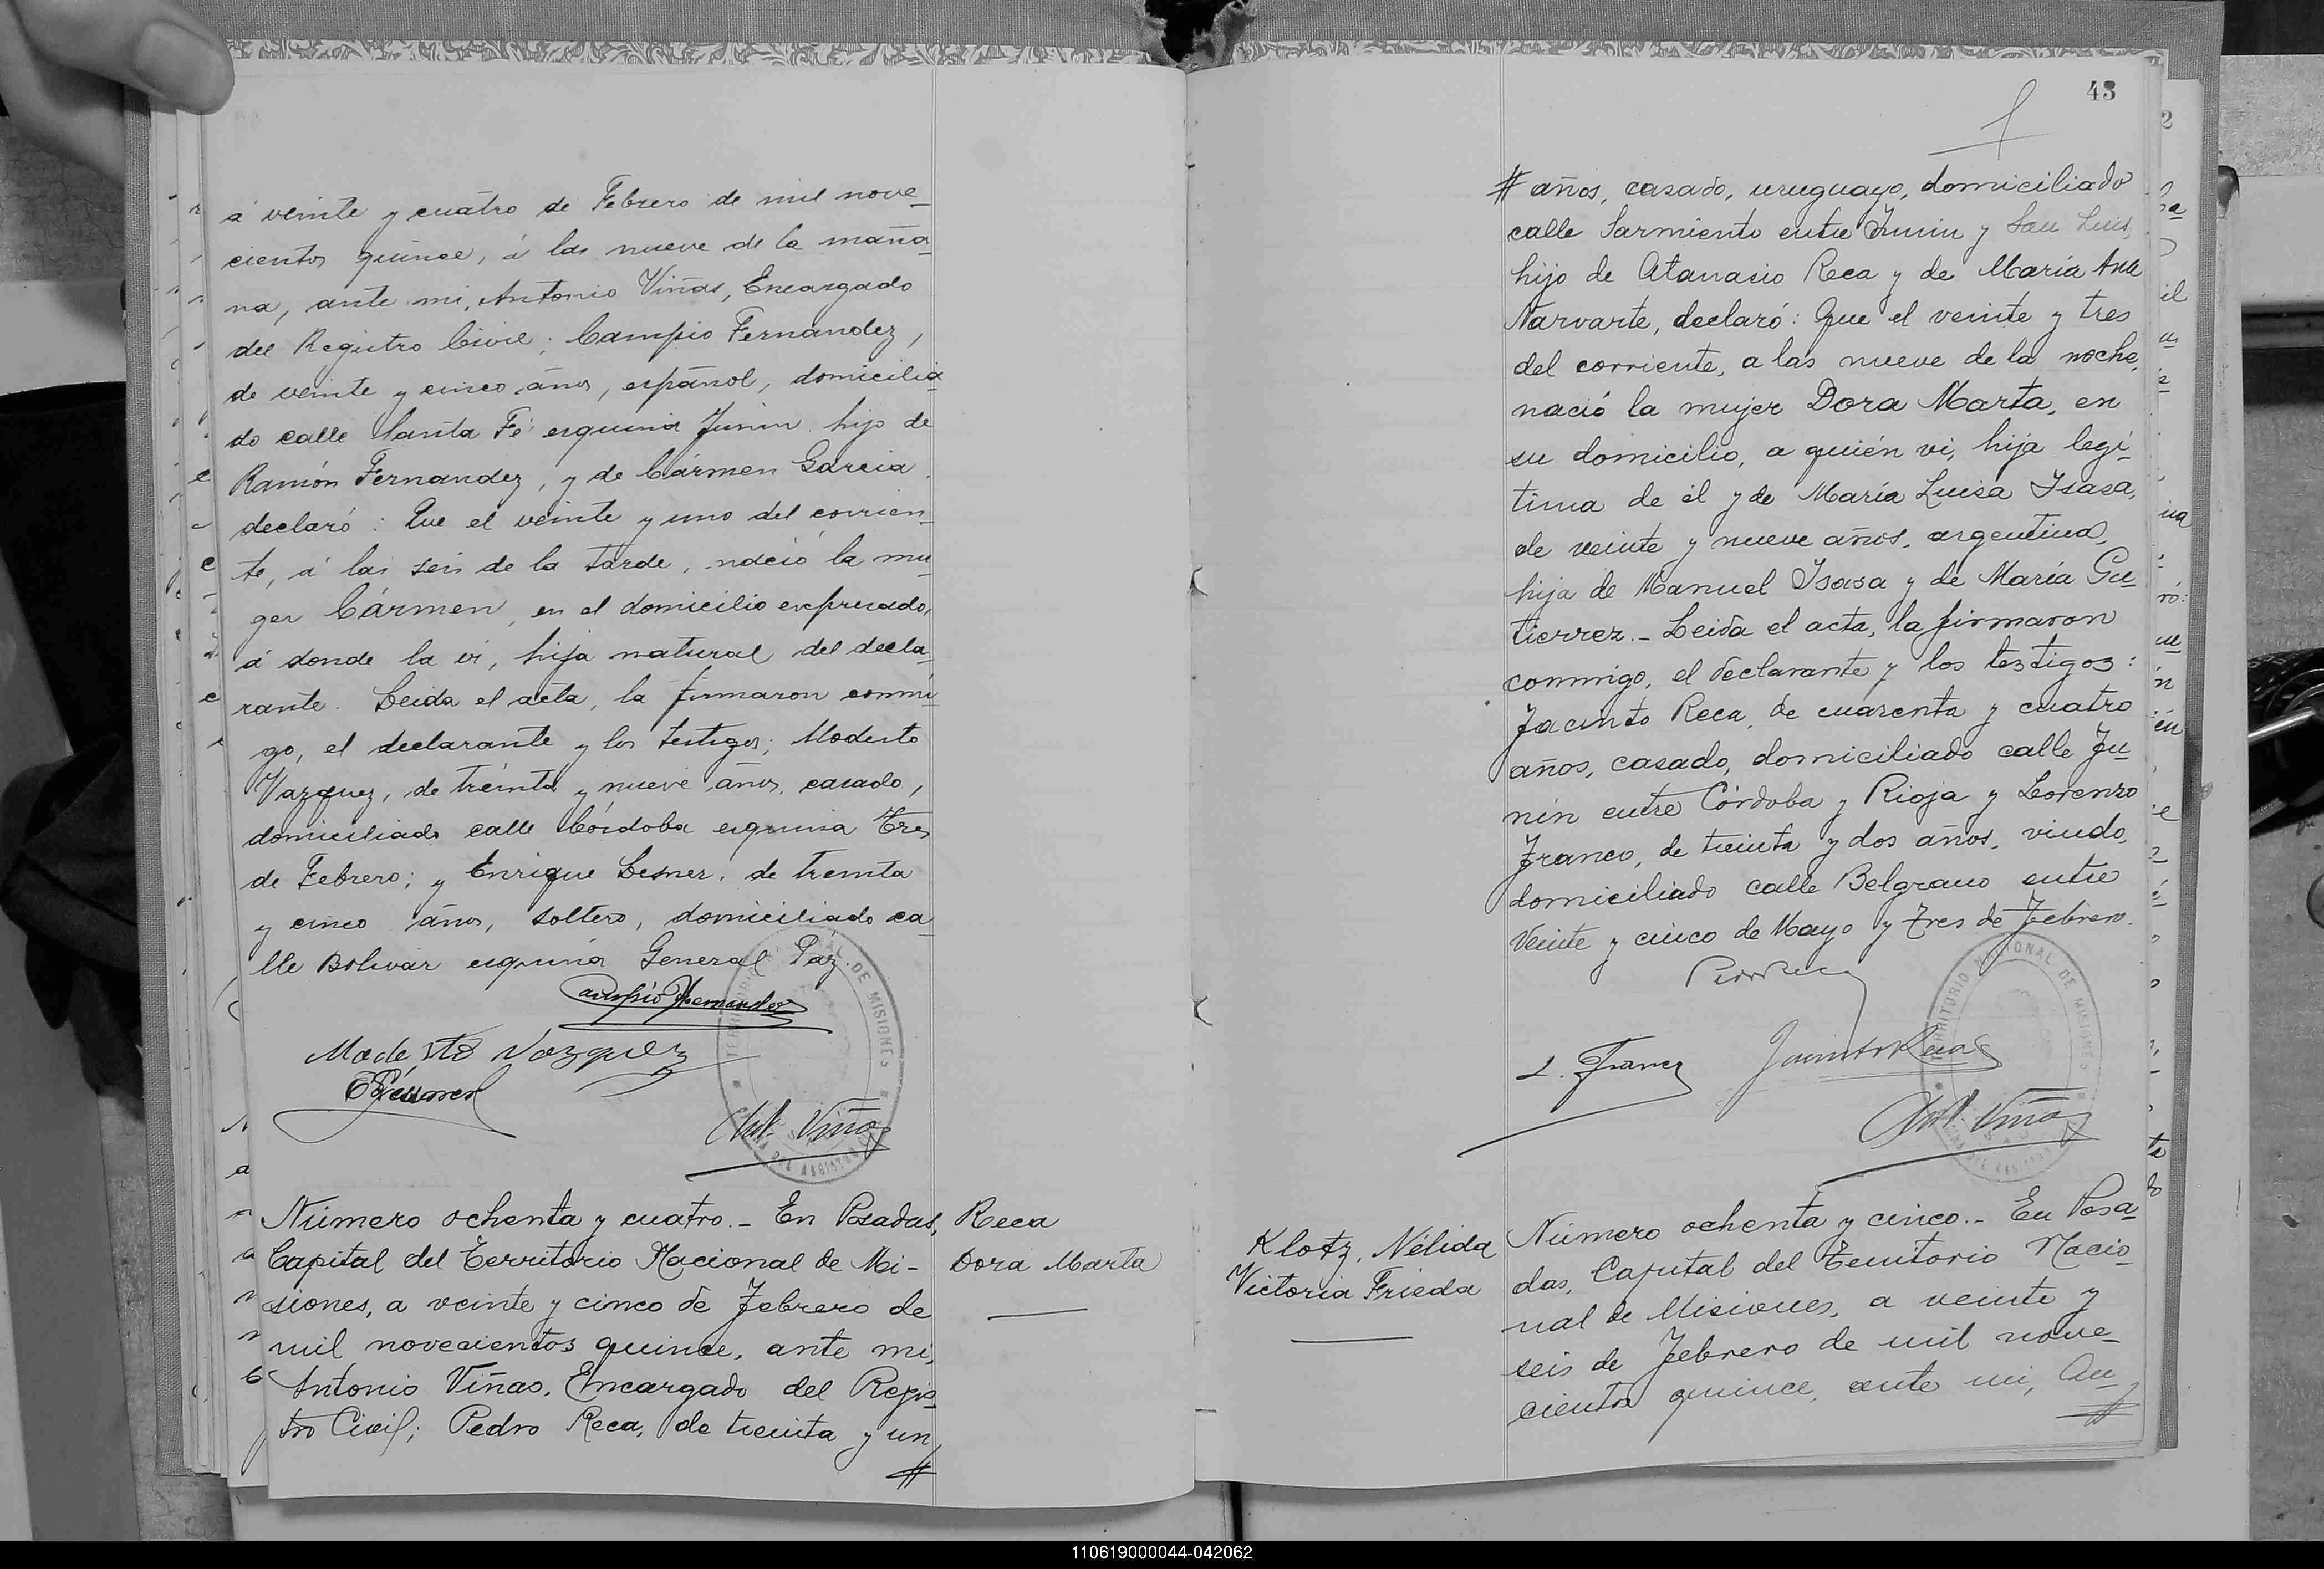 á veinte y cuatro de Febrero de mil nove_
cientos quince, á las nueve de la maña_
na, ante mi, Antonio Viñas, Encargado
del Registro Civil; Campio Fernández,
de veinte y cinco años, español, domicilia_
do calle Santa Fé esquina Junin hijo de
Ramón Fernandez, y de Cármen Garcia
declaró: Que el veinte y uno del corrien_
te, á las seis de la tarde, nació la mu_
ger Cármen, en el domicilio expresado,
á donde la vi, hija natural del decla_
rante. Leida el acta, la firmaron conmi_
go, el declarante y los testigos; Modesto
Vazquez, de treinta y nueve años, casado,
domiciliado calle Córdoba esquina Tres
de Febrero; y Enrique Lesner, de treinta
y cinco años, soltero, domiciliado ca_
lle Bolivar esquina General Paz.
Campio Fernandez
Modesto Vazquez
Ant. Viñas
Número ochenta y cuatro._ En Posadas,
Capital del Territorio Nacional de Mi-
siones, a veinte y cinco de Febrero de
mil novecientos quince, ante mi,
Antonio Viñas, Encargado del Regis_
tro Civil; Pedro Reca, de treinta y un
#
Reca
Dora Marta
43
# años, casado, uruguayo, domiciliado
calle Sarmiento entre Junin y San Luis,
hijo de Atanasio Reca y de María Ana
Narvarte, declaró: Que el veinte y tres
del corriente, a las nueve de la noche,
nació la mujer Dora Marta, en
su domicilio, a quién vi, hija legí_
tima de él y de María Luisa Isasa,
de veinte y nueve años, argentina,
hija de Manuel Isasa y de María Gu_
tierrez._ Leida el acta, la firmaron
conmigo, el declarante y los testigos:
Jacinto Reca, de cuarenta y cuatro
años, casado, domiciliado calle Ju_
nin entre Córdoba y Rioja y Lorenzo
Franco, de treinta y dos años, viudo,
domiciliado calle Belgrano entre
Veinte y cinco de Mayo y Tres de Febrero.
L. Franco Jacinto Reca
Ant. Viñas
TERRITORIO NACIONAL DE MISIONES
Klotz, Nélida
Victoria Frieda
Número ochenta y cinco._ En Posa_
das, Capital del Territorio Nacio_
nal de Misiones, a veinte y
seis de Febrero de mil nove_
cientos quince, ante mi, An_
#
110619000044-042062